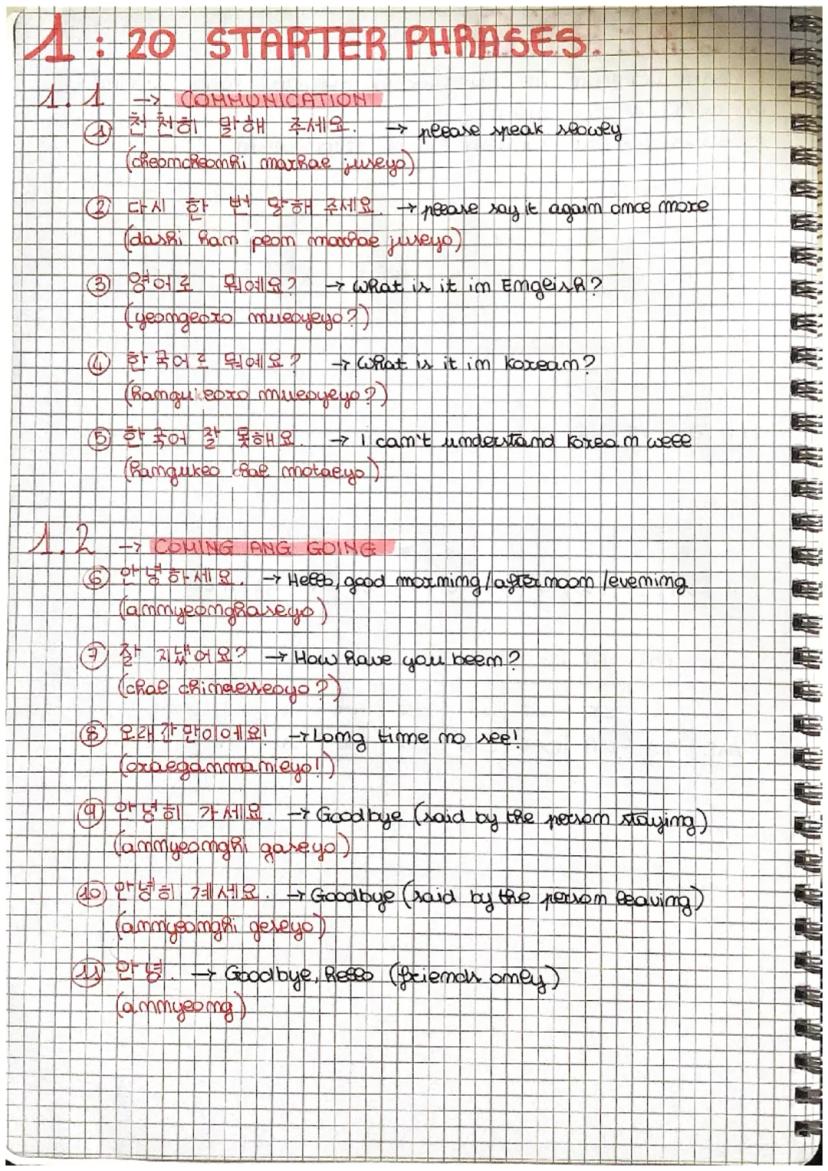 1 : 20 STARTER PHRASES.
1.1 → COMMUNICATION
① 천천히 말해 주세요. → please speak slowly
(cheoncheonhi marhae juseyo)
② 다시 한 번 말해 주세요. → please say it again once more
(dashi han peon marhae juseyo)
③영어로 뭐예요? → What is it in English?
(yeongeoro mueoyeyo?)
④ 한국어로 뭐예요? → What is it in Korean?
(hangukeoro mueoyeyo?)
⑤ 한국어 잘 못해요. → I can't understand Korean well
(hangukeo chal motaeyo)
1.2 → COMING ANG GOING
⑥ 안녕하세요. → Hello, good morning/afternoon/evening
(annyeonghaseyo)
⑦ 잘 지냈어요? → How have you been?
(chal chinaesseoyo?)
⑧ 오래간만이에요! → Long time no see!
(oraeganmanieyo!)
⑨ 안녕히 가세요. → Goodbye (said by the person staying)
(annyeonghi gaseyo)
⑩ 안녕히 계세요. → Goodbye (said by the person leaving)
(annyeonghi geseyo)
⑪ 안녕. → Goodbye, hello (friends only)
(annyeong)